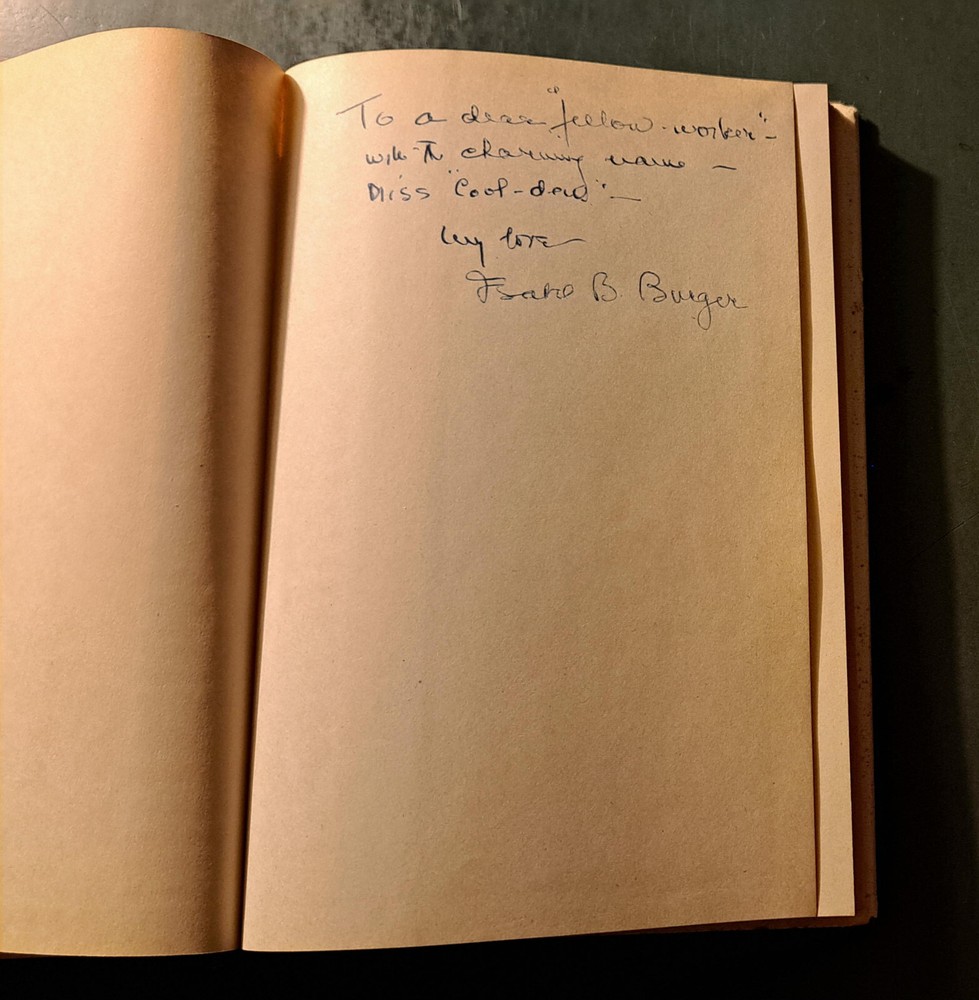 To a dear "fellow-worker" -
with charming name -
Miss "Cool-dew" -
My love
Isabel B. Burger